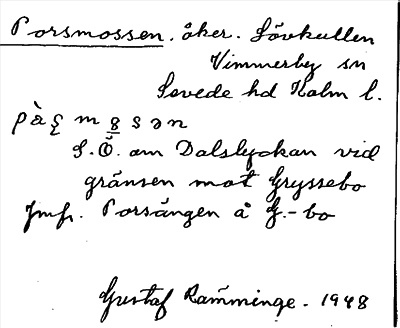 Porsmossen. åker. Lövkullen
Vimmerby sn
Sevede hd Kalm l.
S.Ö. om Dalslyckan vid
gränsen mot Gryssebo
Jmfr. Porsängen å G.-bo
Gustaf Ramminge. 1948